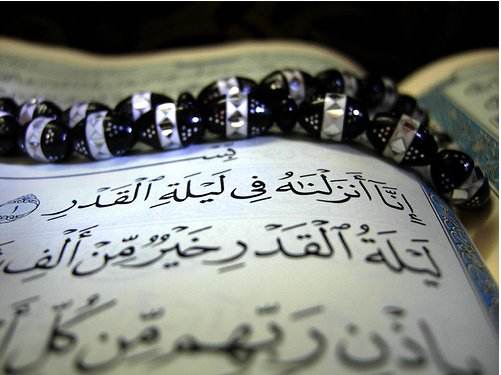 بِسْ
إِنَّا أَنزَلْنَٰهُ فِى لَيْلَةِ ٱلْقَدْرِ ١
لَيْلَةُ ٱلْقَدْرِ خَيْرٌ مِّنْ أَلْفِ
بِإِذْنِ رَبِّهِم مِّن كُلِّ